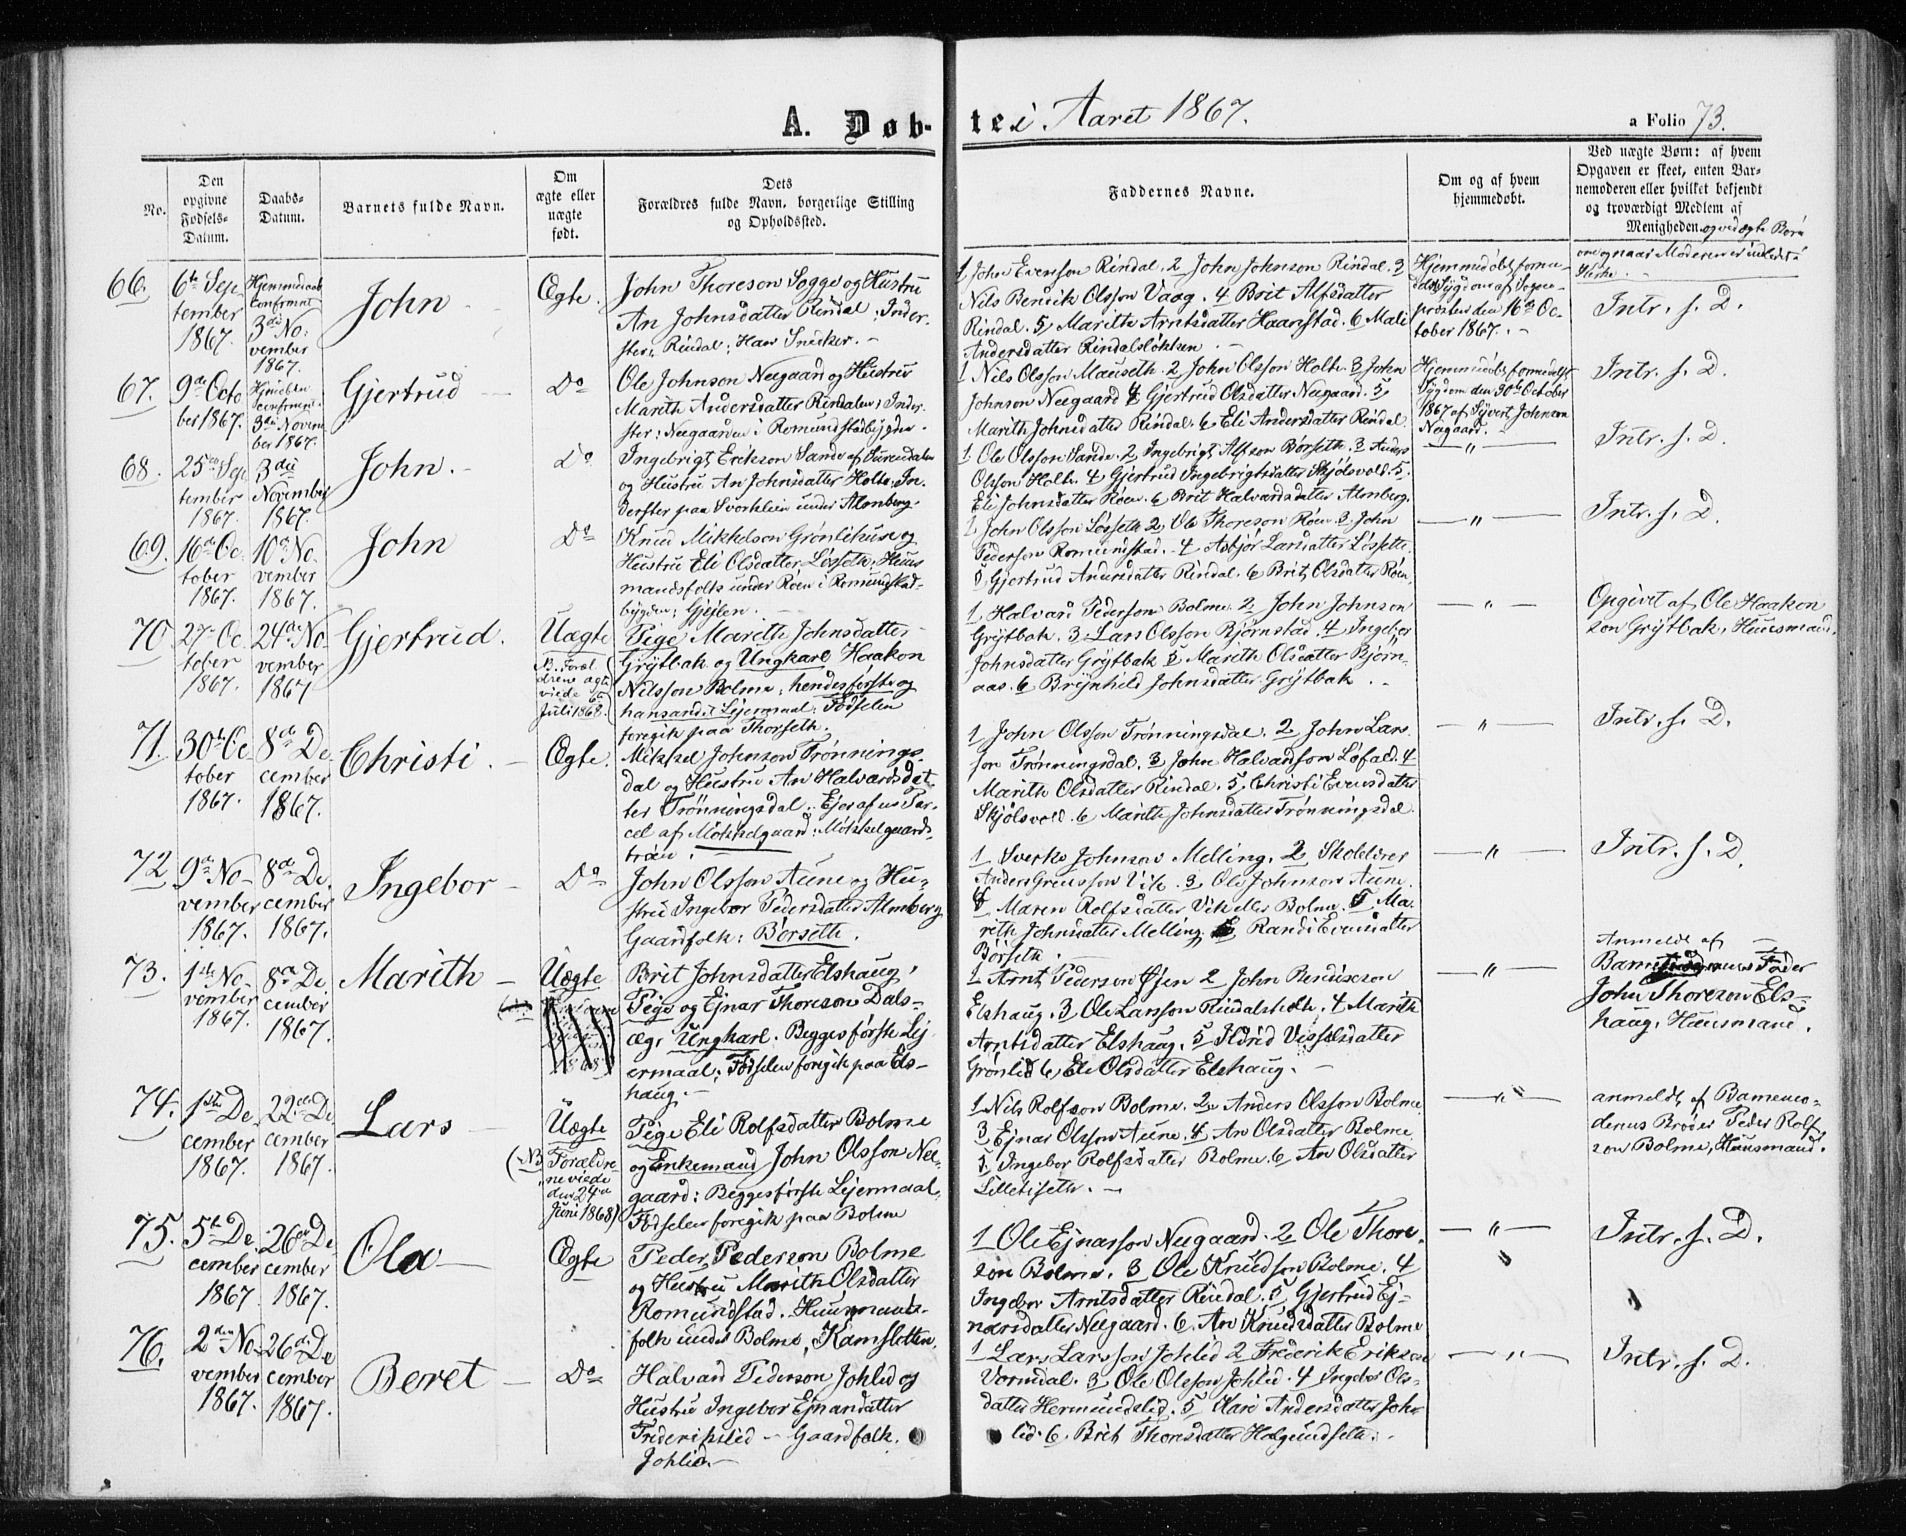 A. Døb-
te i Aaret 1867.
a Folio 73.
No.
Den opgivne Fødsels-Datum.
Daabs-Datum.
Barnets fulde Navn.
Om ægte eller uægte født.
Dets Forældres fulde Navn, borgerlige Stilling og Opholdssted.
Faddernes Navne.
Om og af hvem hjemmedøbt.
Ved uægte Børn: af hvem Opgaven er skeet, enten Barnemoderen eller hvilket bekjendt og troværdigt Medlem af Menigheden. og ved ægte Børn
om og naar Moderen er indledet i Kirke.
66.
6te Sep
tember
1867.
Hjemmedaab
confirmert
3die No:
vember
1867.
John
Ægte.
John Thoreson Sogge og Hustru
An Johnsdatter Rindal; Inder-
ster; Rindal; Han Snedker.
1 John Evensson Rindal. 2 John Johnson Rindal. 3
Nils Bendik Olsson Vaag. 4 Brit Alfsdatter
Rindal. 5 Marith Arntsdatter Haanstad. 6 Mali
Andersdatter Rindalsløkken.
Hjemmedøbt formedelst
Sygdom af Sogne-
præsten den 16de Oc-
tober 1867.
Intr. s. D.
67.
9de Octo
ber 1867.
Hjemdben
confirmert
3die Novem
ber 1867.
Gjertrud
Do
Ole Johnson Neegaard og Hustru
Marith Andersdatter Rindalen; Inder-
ster; Neegaarden i Romundstadbygden.
1 Nils Olsson Mauseth. 2 John Olsson Holte. 3 John
Johnson Neegaard 4 Gjertrud Olsdatter Neegaard. 5
Marith Johnsdatter Rindal. 6 Eli Andersdatter Rindal.
Hjemmedøbt formedelst
Sygdom den 30te October
1867 af Syvert Johnson
Neegaard.
Intr. s. D.
68.
25de Sep
tember
1867.
3die
November
1867.
John.
Do
Ingebrigt Erikson Sande af Surendalen
og Hustru An Johnsdatter Holte; In-
derster paa Svorkleien under Almberg.
1 Ole Olsson Sande. 2 Ingebrigt Alfson Børseth. 3 Anders
Olsson Holte. 4 Gjertrud Ingebrigtsdatter Skjølsvold. 5.
Eli Johnsdatter Røen. 6 Brit Halvardsdatter Almberg.
— " —
Intr. s. D.
69.
16de Oc
tober
1867.
10de No-
vember
1867.
John
Do
Knud Mikkelson Grønlihuse og
Hustru Eli Olsdatter Løsseth, Huus
mandsfolk under Røen i Romundstad-
bygden; Gjejlen.
1 John Olsson Løsseth 2 Ole Thoreson Røen 3 John
Pederson Romundstad. 4 Asbjør Larsdatter Løsseth.
5 Gjertrud Andersdatter Rindal. 6 Brit Olsdatter Røen.
— " —
Intr. s. D.
70
27. Oc
tober
1867.
24de No-
vember
1867
Gjertrud.
Uægte
NB. Foræl
drene ægte
viede 6te
Juli 1868.
Pige Marith Johnsdatter
Grytbak og Ungkarl Haakon
Nilsson Bolme, hendes første og
hans andet Lejermaal: Fødselen
foregik paa Thorseth.
1. Halvard Pederson Bolme. 2 John Johnson
Grytbak. 3. Lars Olsson Bjørnstad. 4 Ingebor
Johnsdatter Grytbak 5 Marith Olsdatter Bjørn-
aas. 6 Brynhild Johnsdatter Grytbak.
— " —
Opgivet af Ole Haakon
son Grytbak, Huusmand.
71.
30te Oc
tober
1867.
8de De
cember
1867.
Christi.
Ægte.
Mikkel Johnson Trønnings
dal og Hustru An Halvardsdat
ter Trønningsdal. Ejer af en Par-
cel af Møkkelgaard: Møkkelgaards-
trøen.
1 John Olsson Trønningsdal. 2 John Lars
son Trønningsdal. 3 John Halvardson Løfald. 4
Marith Olsdatter Rindal. 5 Christi Evensdatter
Skjølsvold. 6 Marith Johnsdatter Trønningsdal.
— " —
Intr. s. D.
72
9de No-
vember
1867.
8de De
cember
1867.
Ingebor
Do
John Olsson Aune og Hu-
stru Ingebor Pedersdatter Almberg
Gaardfolk: Børseth.
1 Sverke Johnson Melling. 2 Skolelærer
Anders Vik. 3 Ole Johnson Aune.
4 Maren Rolfsdatter Vik eller Bolme. 5 Ma-
rith Johnsdatter Melling. 6 Randi Evensdatter
Børseth.
— " —
Intr. s. D.
73.
1ste No-
vember
1867.
8de De
cember
1867.
Marith
Uægte
Brit Johnsdatter Elshaug,
Pige og Ejnar Thoreson Dals-
æg; Ungkarl. Begges første Lej
ermaal; Fødselen foregik paa Els-
haug.
1 Arnt Pederson Øjen 2 John Bendixson
Elshaug. 3 Ole Larsson Rindalsholt. 4 Marith
Arntsdatter Elshaug. 5 Ildrid Visselsdatter
Grønlid 6 Eli Olsdatter Elshaug.
— " —
Anmeldt af
Barnets Fader
John Thoreson Els-
haug, Huusmand.
74.
1ste De
cember
1867.
22de De
cember
1867.
Lars
Uægte
(NB Forældre-
ne viede
den 24de
Juni 1868)
Pige Eli Rolfsdatter Bolme
og Enkemand John Olsson Nee-
gaard: Begges første Lejermaal.
Fødselen foregik paa Bolme
1 Nils Rolfson Bolme. 2 Anders Olsson Bolme
3 Ejnar Olsson Aune. 4 An Olsdatter Bolme.
5 Ingebor Rolfsdatter Bolme. 6 An Olsdatter
Lilletiseth.
— " —
anmeldt af Barnemo-
derens Broder Peder Rolf
son Bolme, Huusmand.
75.
5te De
cember
1867.
26de De
cember
1867.
Ola
Ægte
Peder Pederson Bolme
og Hustru Marith Olsdatter
Romundstad. Huusmands-
folk under Bolme, Kamsletten.
1 Ole Ejnarsson Neegaard. 2 Ole Thore
son Bolme. 3 Ole Knudson Bolme. 4
Ingebor Arntsdatter Rindal. 5 Gjertrud Ej-
narsdatter Neegaard. 6. An Knudsdatter Bolme
— " —
Intr. s. D.
76.
2den No-
vember
1867.
26de De
cember
1867.
Beret
Do
Halvard Pederson Johlid og
Hustru Ingebor Ejnarsdatter
Frederikslid — Gaardfolk.
Johlid.
1 Lars Larsson Johlid 2 Frederik Erikson
Vormdal. 3 Ole Olsson Johlid. 4 Ingebor Ols-
datter Hermundslid. 5 Kari Andersdatter Joh-
lid. 6. Brit Thoresdatter Halgundseth.
— " —
Intr. s. D.